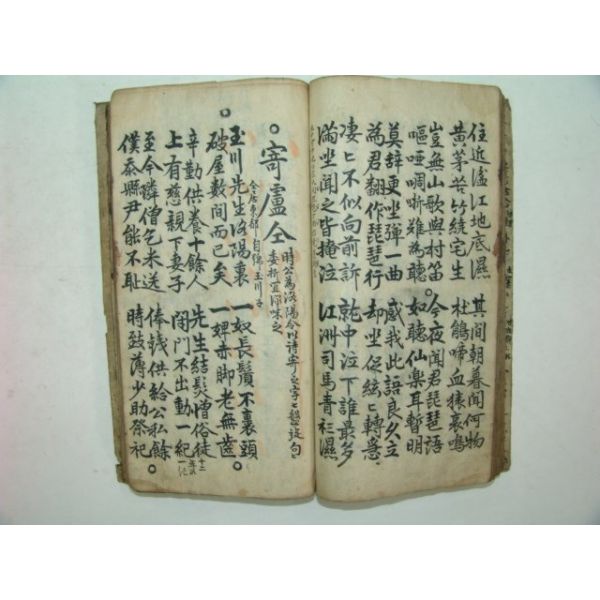 住近瀘江地底濕 其間朝暮聞何物
黃茅苦竹繞宅生 杜鵑啼血猿哀鳴
豈無山歌與村笛 今夜聞君琵琶語
嘔啞啁哳難為聽 如聽仙樂耳暫明
莫辭更坐彈一曲 感我此語良久立
為君翻作琵琶行 却坐促絃匕轉急
凄匕不似向前訴 就中泣下誰最多
滿坐聞之皆掩泣 江洲司馬青衫濕
寄盧仝
時公為洛陽令以詩寄之字匕句匕
委折宜深味之
仝居東都自號玉川子
玉川先生洛陽裏 一奴長鬚不裹頭
破屋數間而已矣 一婢赤脚老無齒
辛勤供養十餘人 先生結髮憎俗徒
上有慈親下妻子 閉門不出動一紀
至今隣僧乞米送 俸錢供給公私餘
僕忝縣尹能不恥 時致薄少助祭祀